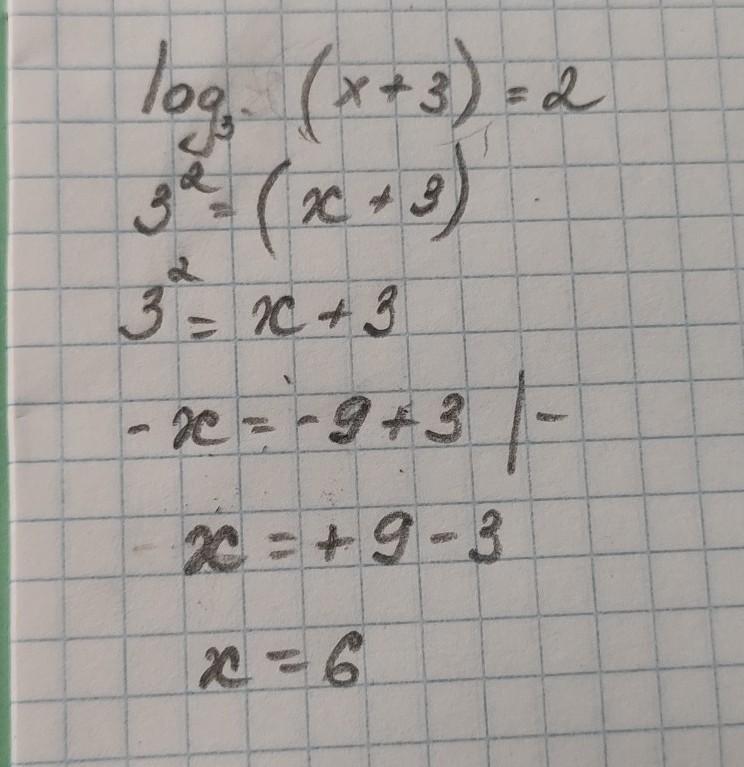 log₃ (x+3) = 2
3² = (x + 3)
3² = x + 3
- x = - 9 + 3 | -
x = + 9 - 3
x = 6